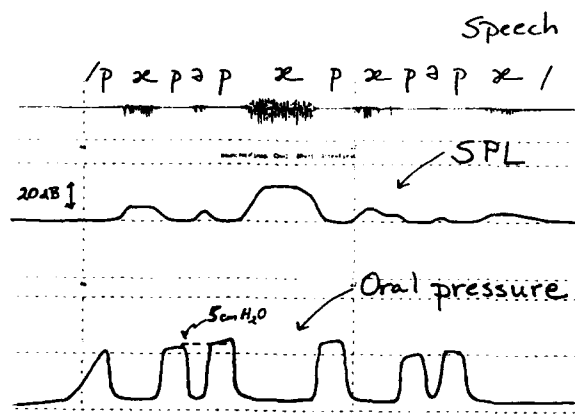 Speech
/p æ p ə p æ p æ p ə p æ /
SPL
20dB
Oral pressure
5cmH₂O